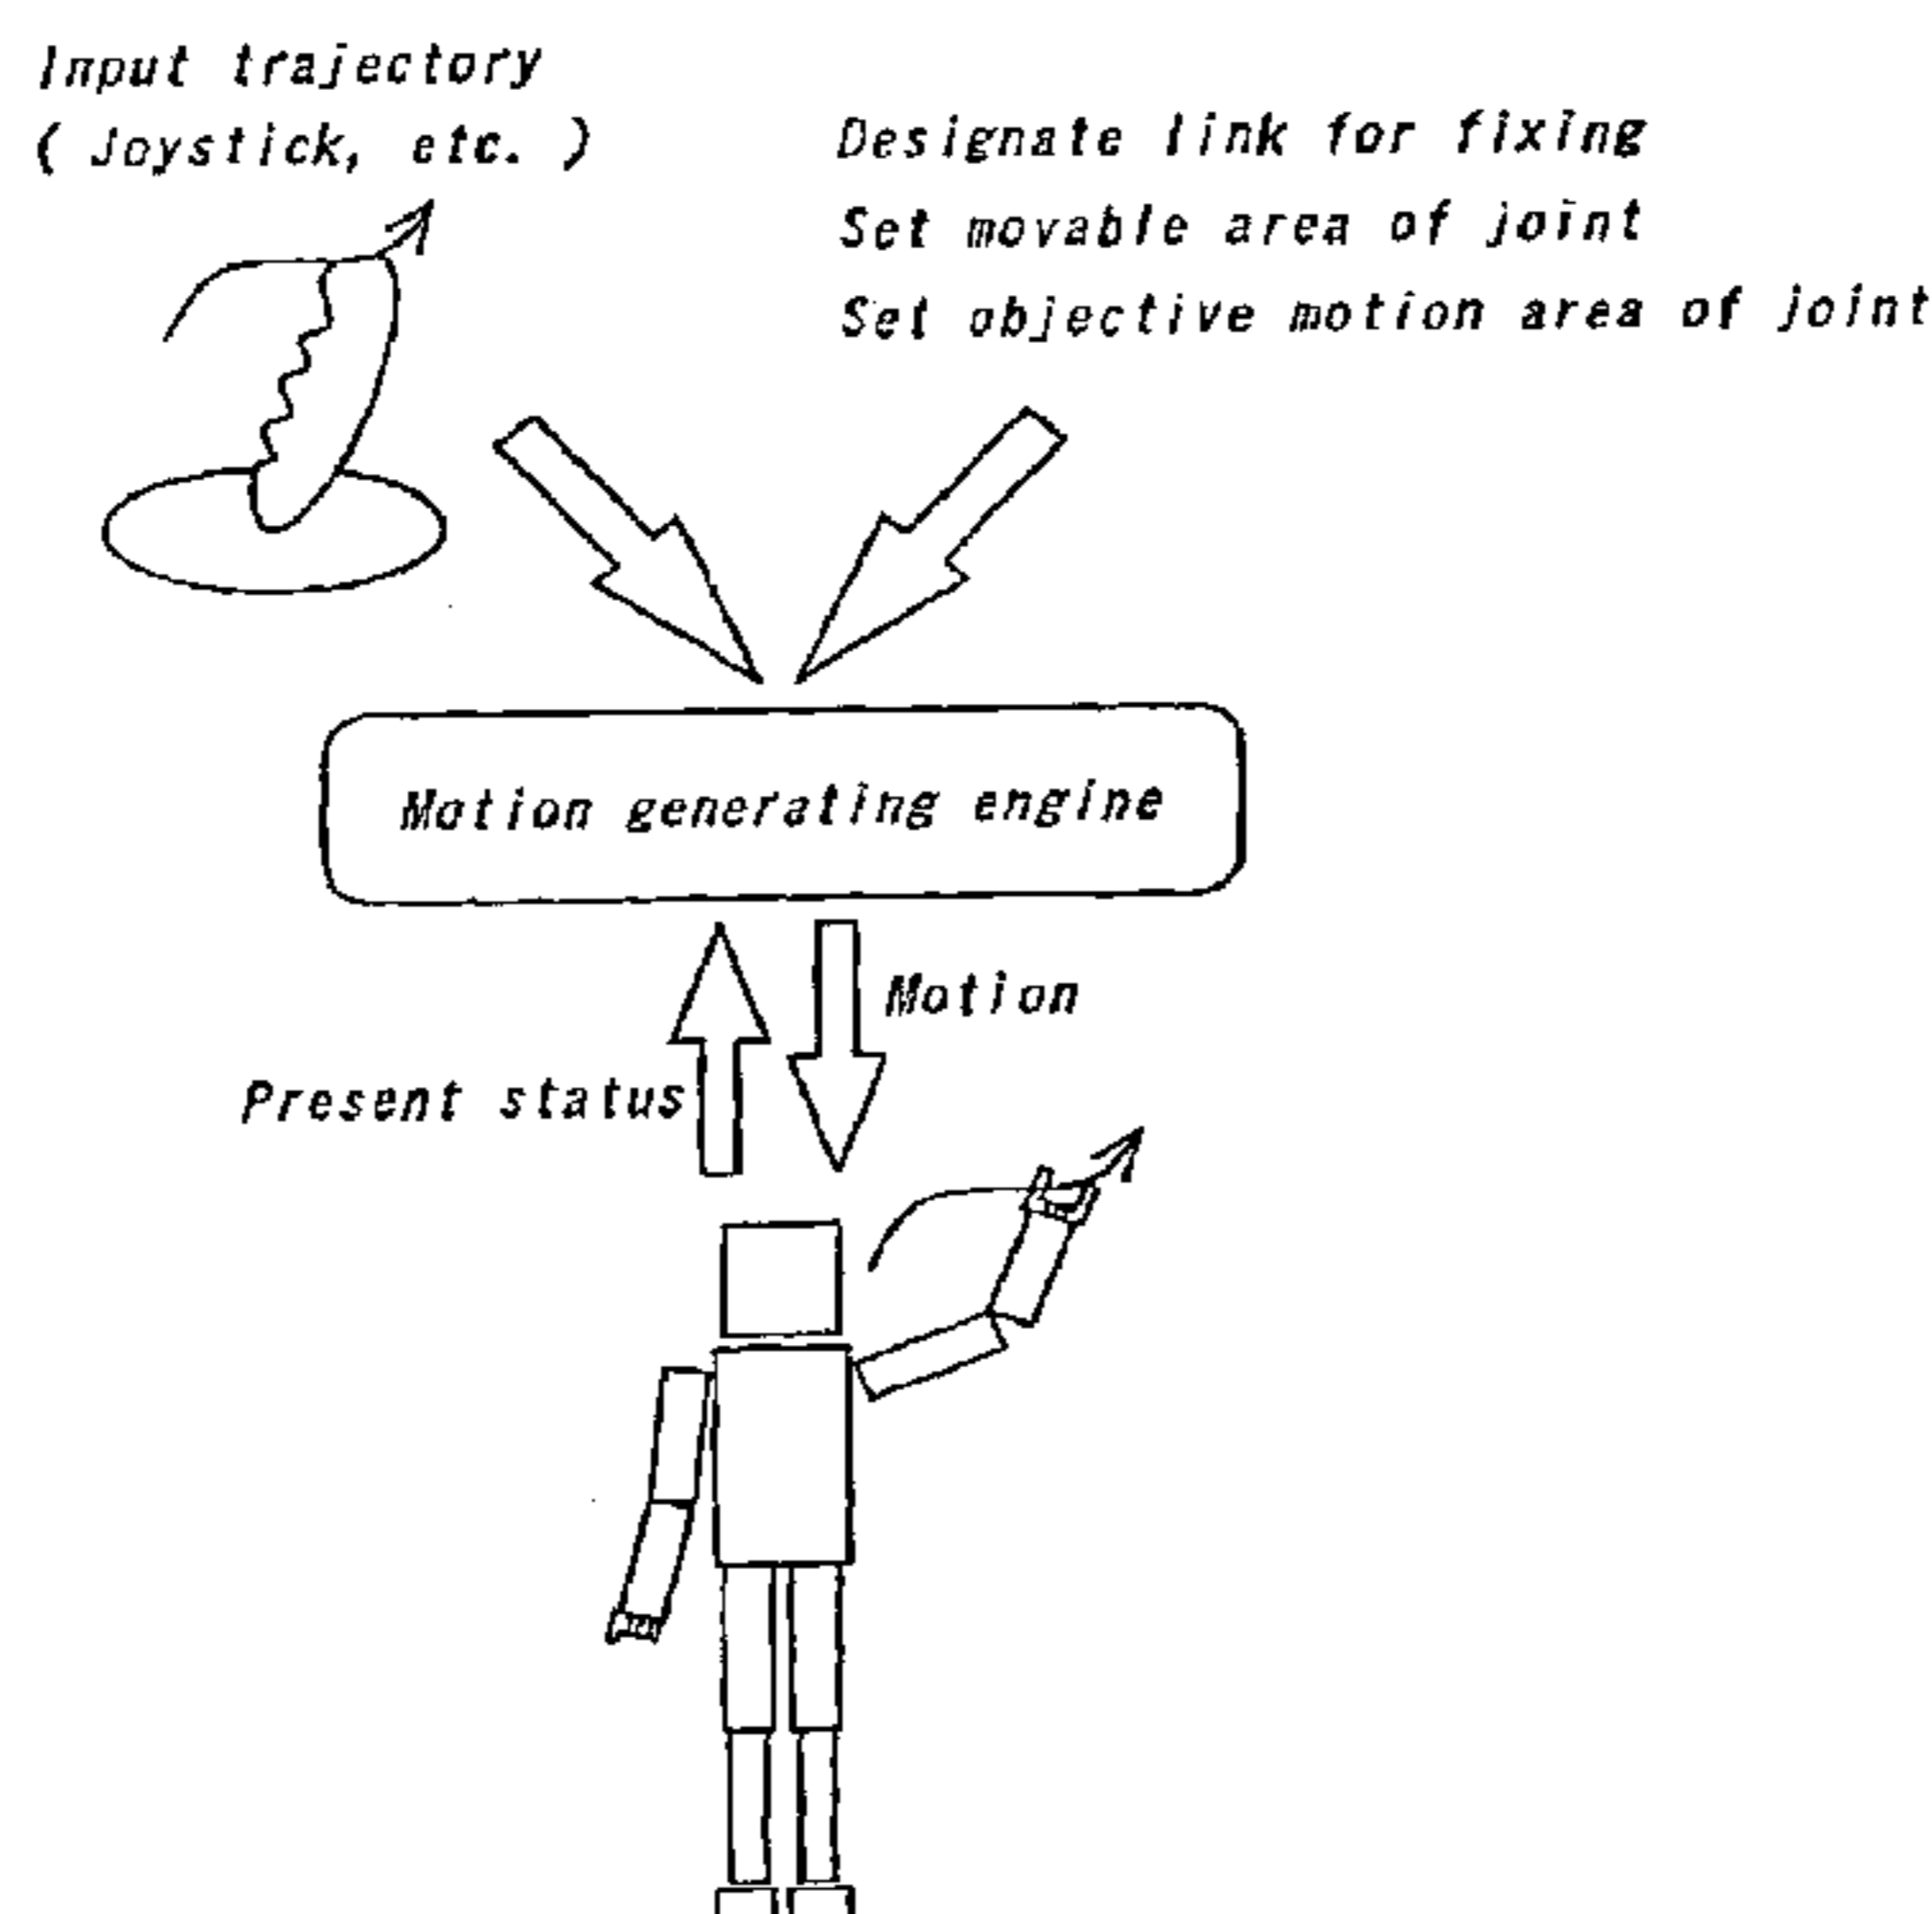 Input trajectory
( Joystick, etc. )
Designate link for fixing
Set movable area of joint
Set objective motion area of joint
Motion generating engine
Motion
Present status